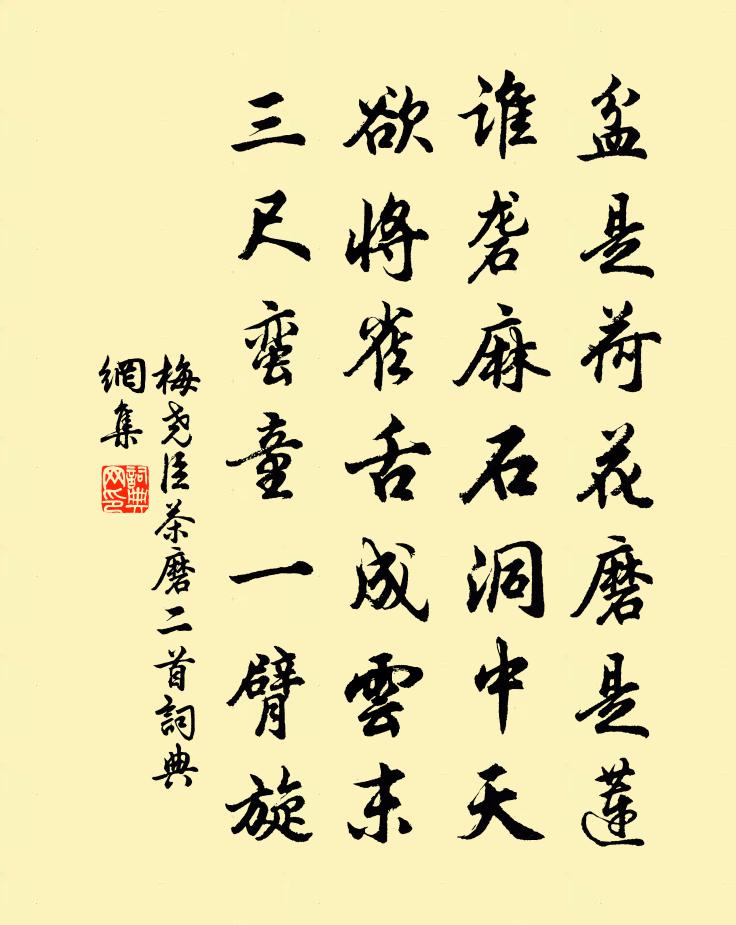 盆是荷花磨是蓮
誰砻麻石洞中天
欲將雀舌成雲末
三尺蛮童一臂旋
梅尧臣茶磨二首詞典
網集
詞典
网印